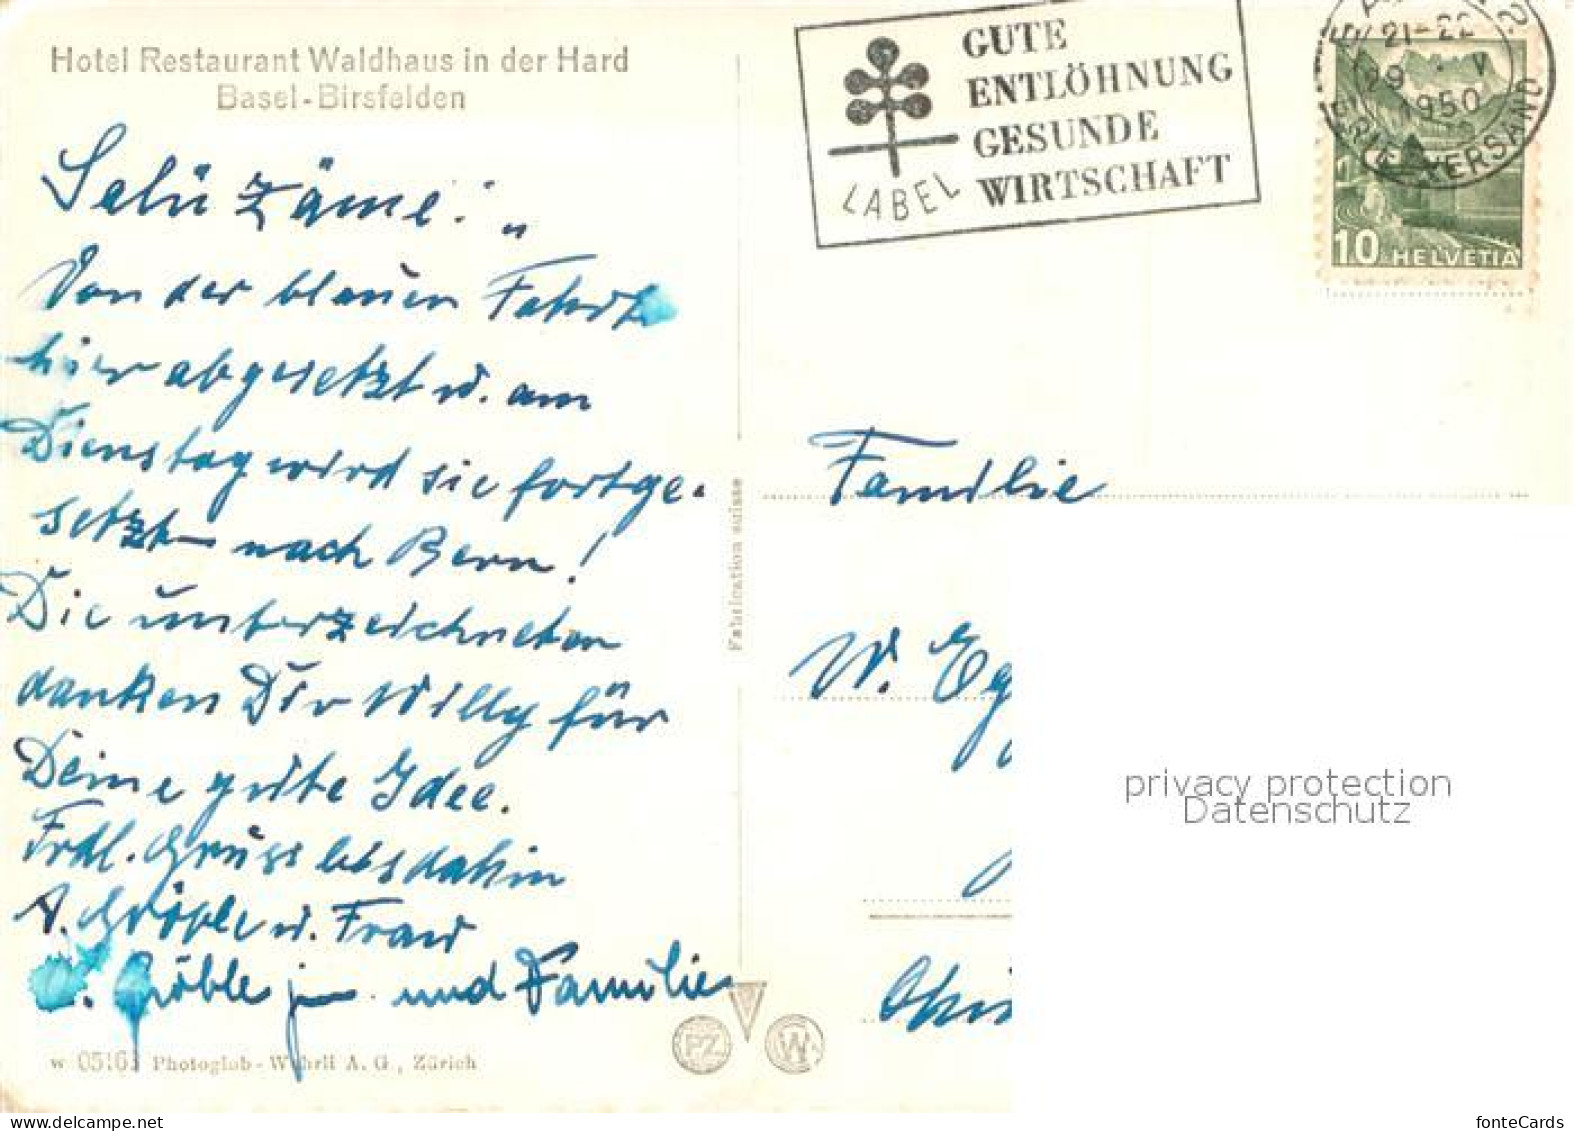 Hotel Restaurant Waldhaus in der Hard
Basel-Birsfelden
Salü Zäme!"
Von der blauen Fahrt
hier abgesetzt u. am
Dienstag wird sie fortge-
setzt nach Bern!
Die unterzeichneten
danken Dir Willy für
Deine gute Idee.
Frdl. Gruss bis dahin
A. Gröble u. Frau
Gröble jun. und Familie
w 05163 Photoglob-Wehrli A. G., Zürich
Fabrication suisse
PZ
W
LABEL
GUTE
ENTLÖHNUNG
GESUNDE
WIRTSCHAFT
21-22
29 V
1950
BRIEFVERSAND
10 HELVETIA
Familie
W. Eg
privacy protection
Datenschutz
www.delcampe.net
fonteCards